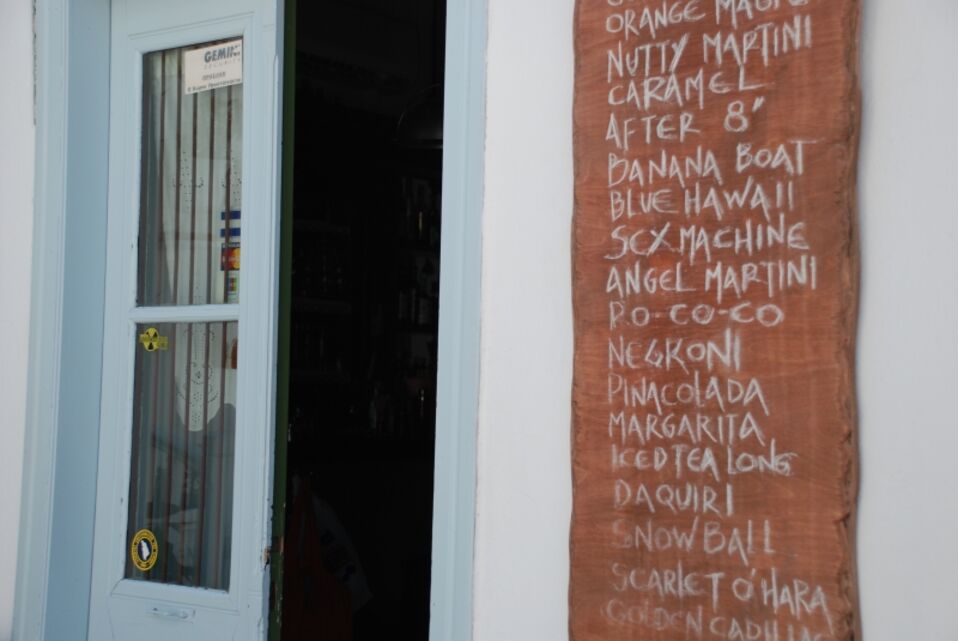 GEMINI
SECURITY
ORANGE
NUTTY MARTINI
CARAMEL
AFTER 8"
BANANA BOAT
BLUE HAWAII
SEX MACHINE
ANGEL MARTINI
RO-CO-CO
NEGRONI
PINACOLADA
MARGARITA
ICED TEA LONG
DAQUIRI
SNOWBALL
SCARLET O'HARA
GOLDEN CADILL